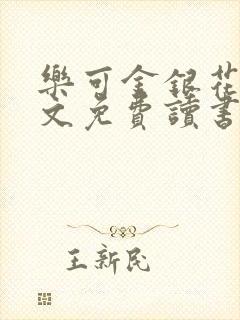 樂可金銀花
文免費讀書
王新民